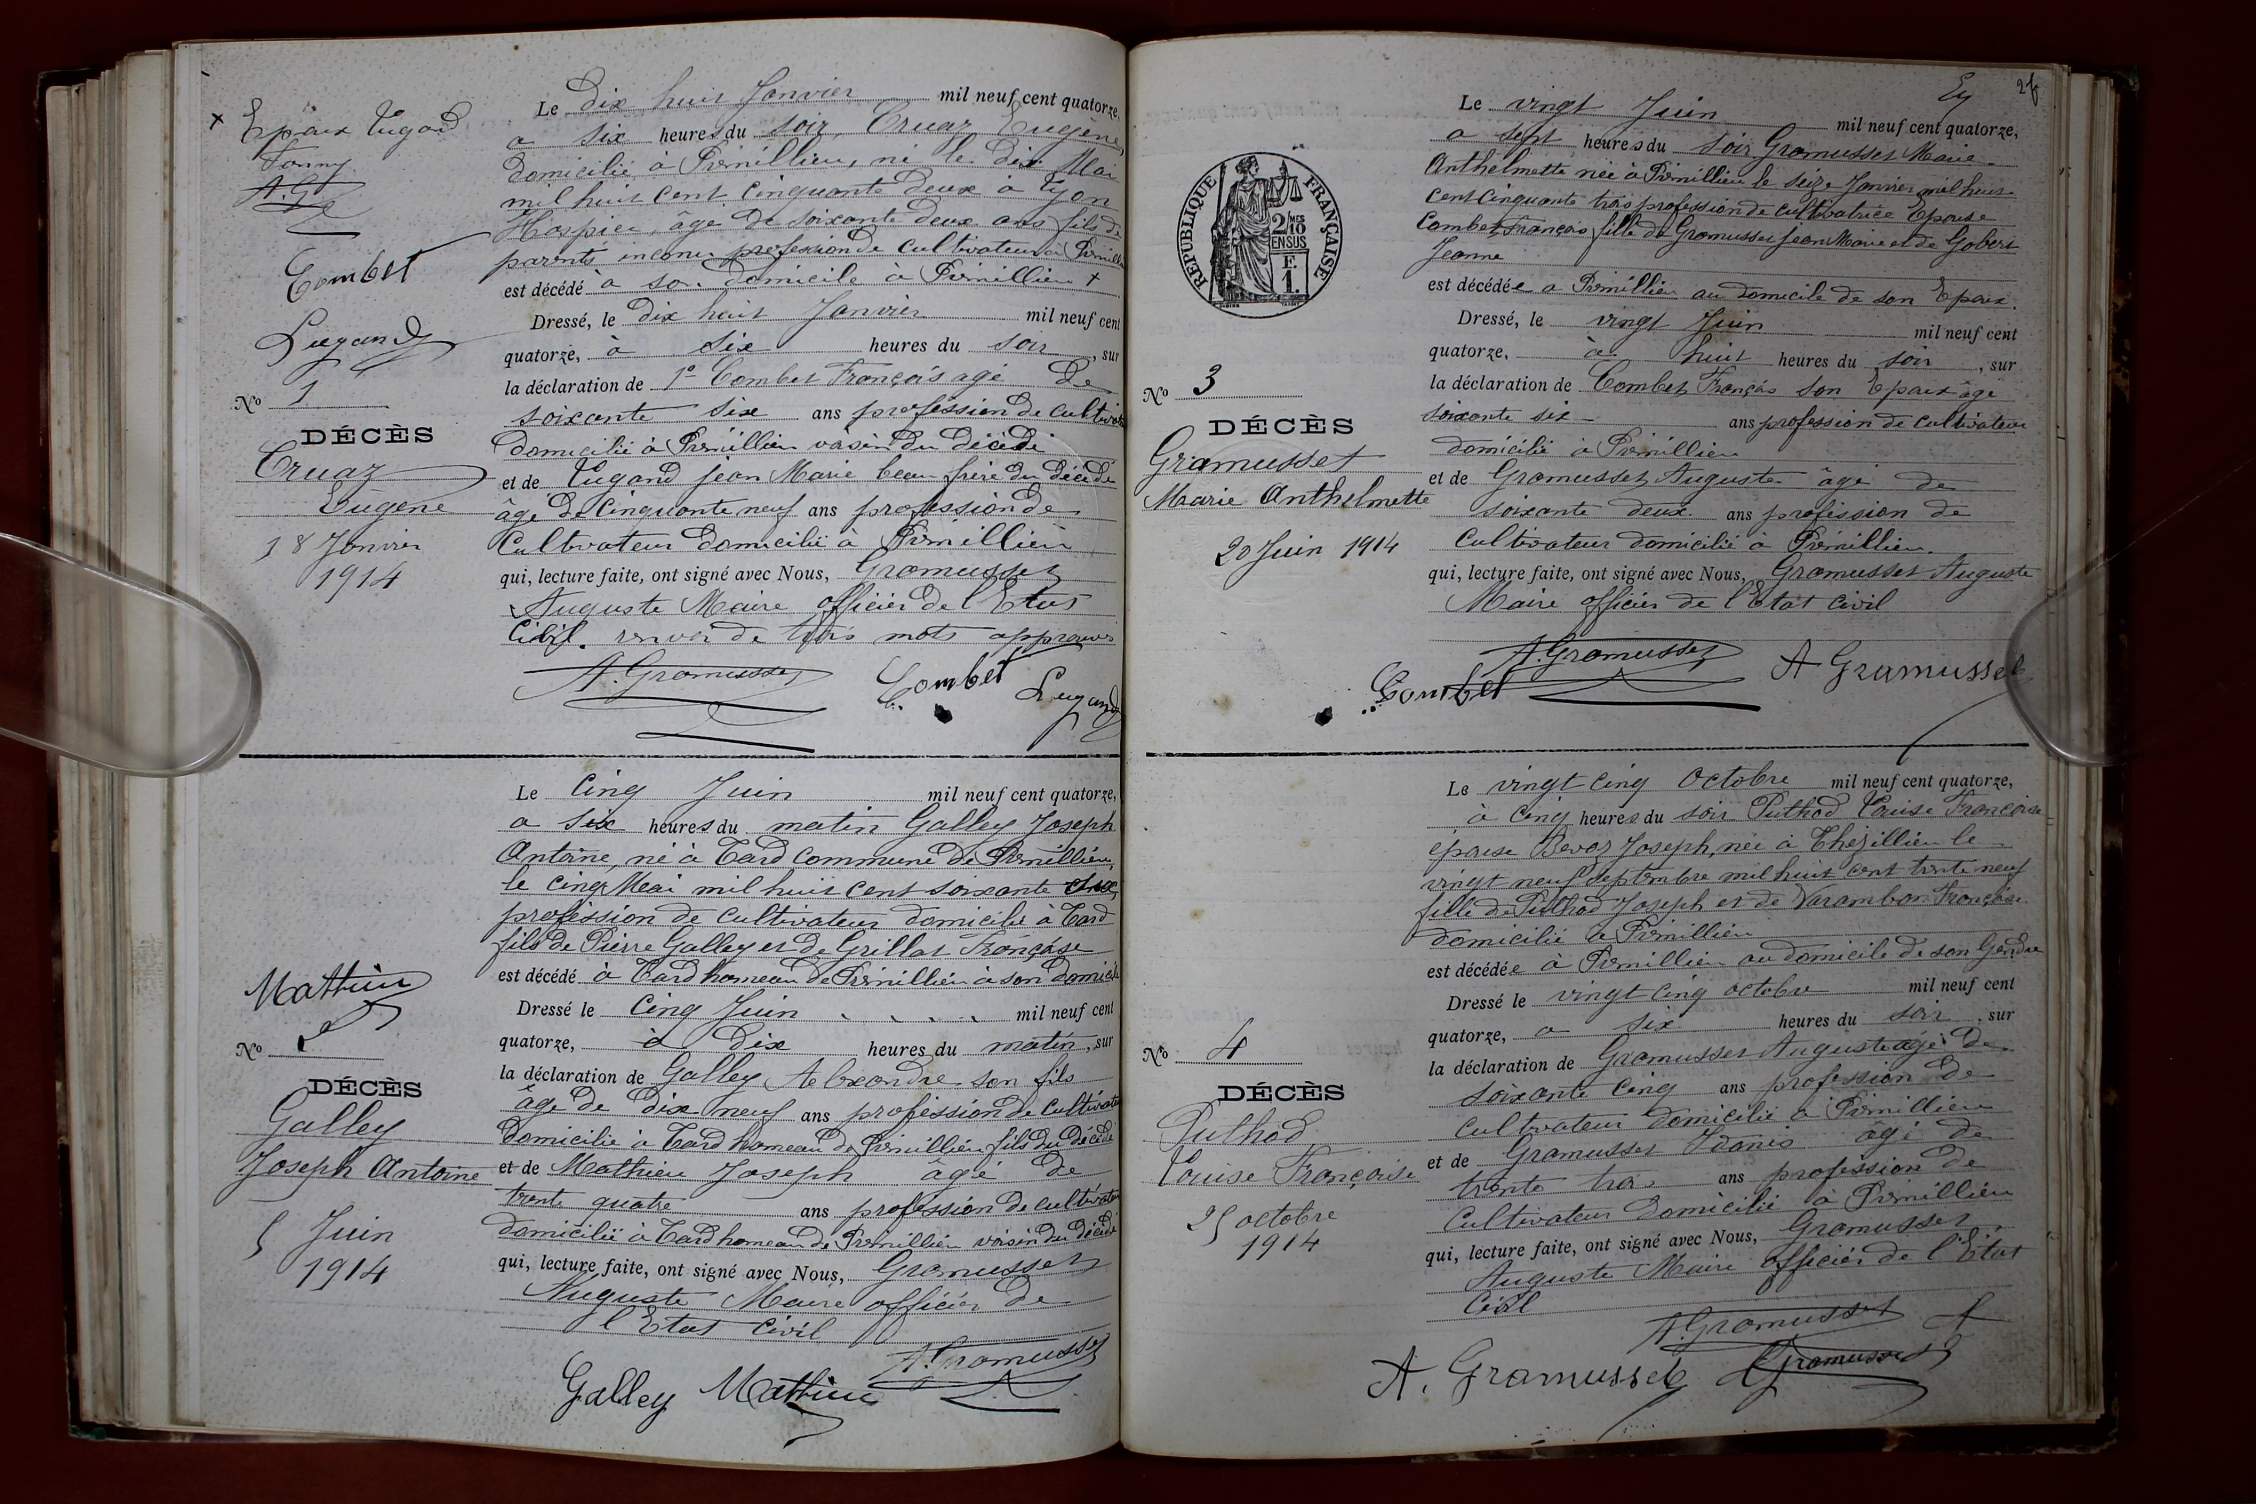 x Epoux Lugand
Fanny
A. G.
Combet
Lugand
No 1
DÉCÈS
Cruaz
Eugène
18 Janvier
1914
Le dix huit Janvier mil neuf cent quatorze,
a six heures du soir, Cruaz Eugène,
domicilié à Prémillieu, né le dix Mai
mil huit cent cinquante deux à Lyon
Hospice, âgé de soixante deux ans fils de
parents inconu profession de cultivateur à
est décédé à son domicile à Prémillieu x
Dressé, le dix huit Janvier mil neuf cent
quatorze, à six heures du soir, sur
la déclaration de 1° Combet François agé de
soixante six ans profession de
domicilié à Prémillieu voisin du décédé
et de Lugand Jean Marie beau frère du décédé
âgé de cinquante neuf ans profession de
Cultivateur domicilié à Prémillieu
qui, lecture faite, ont signé avec Nous, Gramusset
Auguste Maire officier de l'Etat
Civil. renvoi de trois mots approuvés
A. Gramusset Combet Lugand
Mathieu
No
DÉCÈS
Galley
Joseph Antoine
5 Juin
1914
Le Cinq Juin mil neuf cent quatorze,
a six heures du matin Galley Joseph
Antoine, né à Tard commune de Prémillieu,
le cinq Mai mil huit cent soixante
profession de cultivateur domicilié à Tard
fils de Pierre Galley et de Grillat Françoise
est décédé à Tard hameau de Prémillieu à son domicile
Dressé le Cinq Juin mil neuf cent
quatorze, à dix heures du matin, sur
la déclaration de Galley Alexandre son fils
âgé de dix neuf ans profession de
domicilié à Tard hameau de Prémillieu fils du décédé
et de Mathieu Joseph âgé de
trente quatre ans profession de
domicilié à Tard hameau de Prémillieu voisin du décédé
qui, lecture faite, ont signé avec Nous, Gramusset
Auguste Maire officier de
l'Etat Civil
A. Gramusset
Galley Mathieu
26
RÉPUBLIQUE FRANÇAISE
2/10 MES
EN SUS
F.
1.
No 3
DÉCÈS
Gramusset
Marie Anthelmette
20 Juin 1914
Le vingt Juin mil neuf cent quatorze,
a sept heures du soir Gramusset Marie
Anthelmette née à Prémillieu le seize Janvier mil huit
cent cinquante trois profession de cultivatrice Epouse
Combet François fille de Gramusset Jean Marie et de Gobert
Jeanne
est décédée a Prémillieu au domicile de son Epoux.
Dressé, le vingt Juin mil neuf cent
quatorze, à huit heures du soir, sur
la déclaration de Combet François son Epoux âgé
soixante six ans profession de cultivateur
domicilié à Prémillieu
et de Gramusset Auguste âgé de
soixante deux ans profession de
Cultivateur domicilié à Prémillieu.
qui, lecture faite, ont signé avec Nous, Gramusset Auguste
Maire officier de l'Etat Civil
A. Gramusset
Combet A Gramusset
No 4
DÉCÈS
Puthod
Louise Françoise
25 octobre
1914
Le vingt cinq Octobre mil neuf cent quatorze,
à cinq heures du soir Puthod Louise Françoise
épouse Bevoz Joseph, née à Thézillieu le
vingt neuf septembre mil huit cent trente neuf
fille de Puthod Joseph et de Varambon Françoise
domicilié à Prémillieu
est décédée à Prémillieu au domicile de son Gendre
Dressé le vingt cinq octobre mil neuf cent
quatorze, a six heures du soir, sur
la déclaration de Gramusset Auguste âgé de
soixante cinq ans profession de
cultivateur domicilié à Prémillieu
et de Gramusset âgé de
trente trois ans profession de
Cultivateur domicilié à Prémillieu
qui, lecture faite, ont signé avec Nous, Gramusset
Auguste Maire officier de l'Etat
Civil
A. Gramusset
A. Gramusset Gramusset